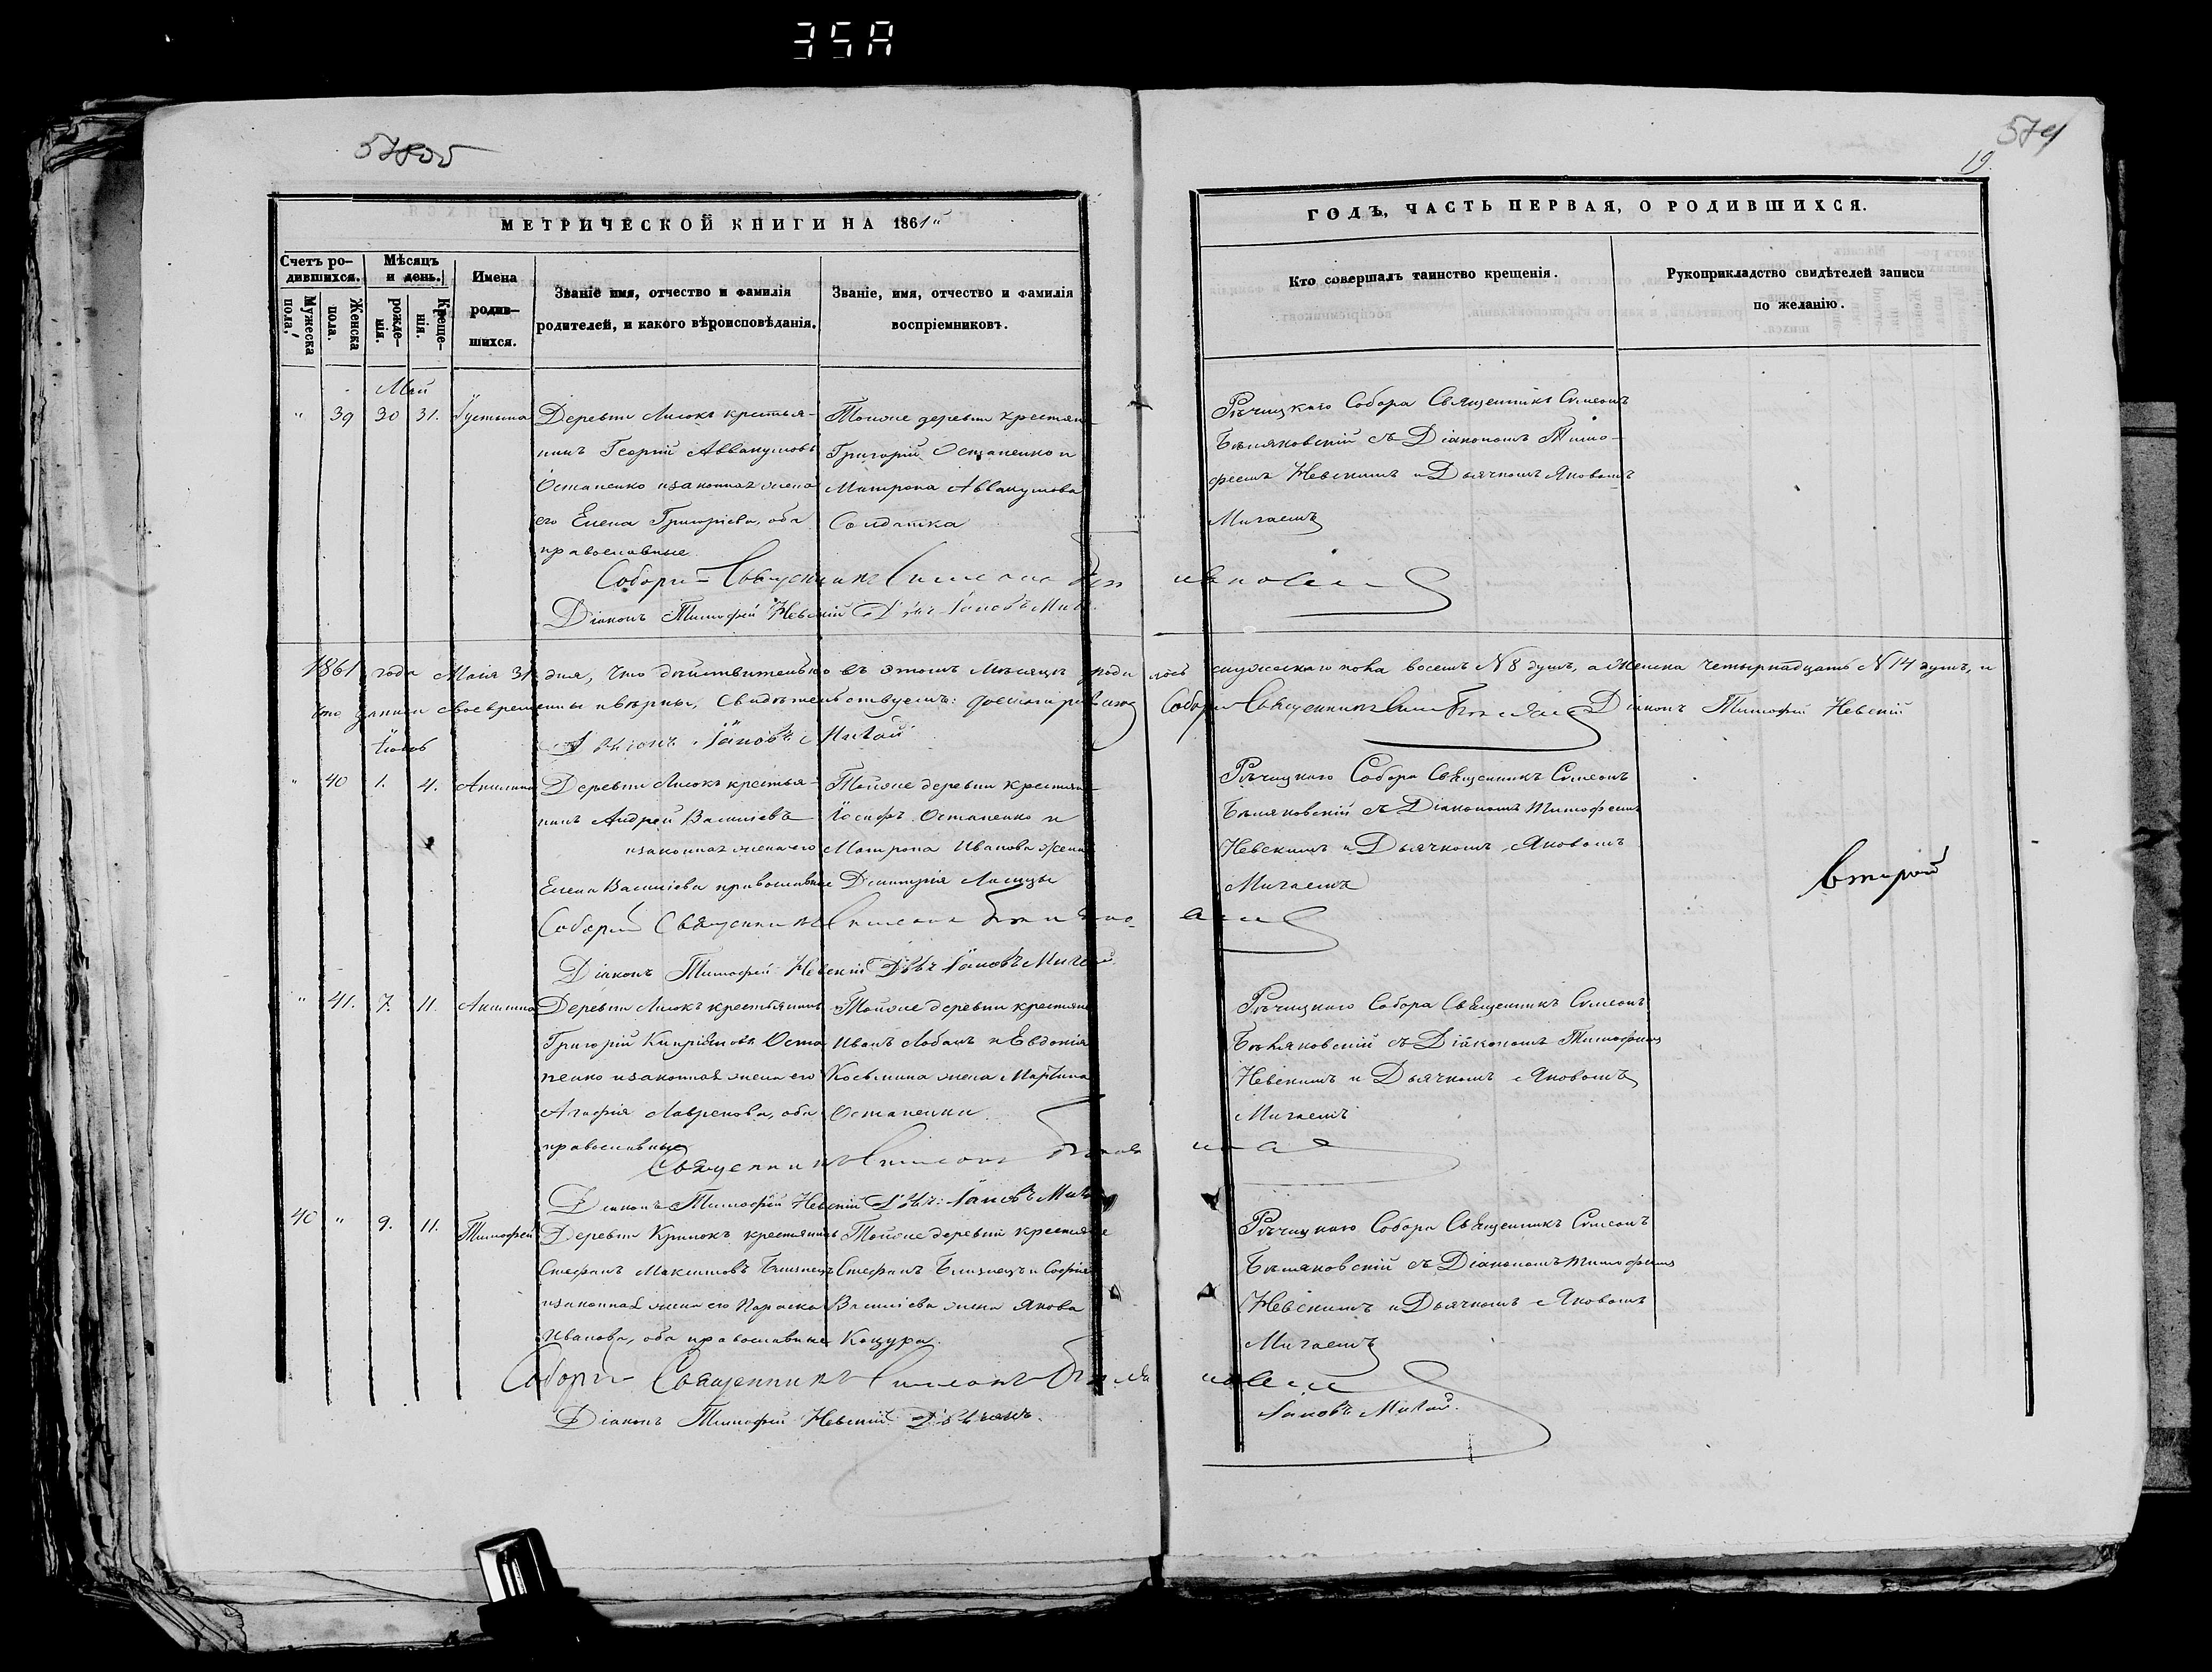 35A
574
19.
МЕТРИЧЕСКОЙ КНИГИ НА 1861й
ГОДЪ, ЧАСТЬ ПЕРВАЯ, О РОДИВШИХСЯ.
Счетъ ро-
дившихся.
Мужеска
пола,
Женска
пола.
Мѣсяцъ
и день.
рожде-
нія.
Креще-
нія.
Имена
родив-
шихся.
Званіе имя, отчество и фамилія
родителей, и какого вѣроисповѣданія.
Званіе, имя, отчество и фамилія
воспріемниковъ.
Кто совершалъ таинство крещенія.
Рукоприкладство свидѣтелей записи
по желанію.
Май
" 39 30 31. Іустина
Деревни Лисокъ крестья-
нинъ Георгій Аввакумовъ
Остапенко и законная жена
его Елена Григоріева, оба
православные.
Тойже деревни крестьян-
Григорій Остапенко и
Матрона Аввакумова
Солдатка
Рѣчицкаго Собора Священникъ Сѵмеонъ
Бѣляковскій съ Діакономъ Тимо-
феемъ Невскимъ и Дьячкомъ Яковомъ
Мигаемъ
Собор: Священникъ Симеонъ Бѣляковскій
Діаконъ Тимофей Невскій
1861 года Мая 31 дня, что дѣйствительно въ этомъ мѣсяцѣ родилось мужескаго пола восемь N 8 душъ, а женска четырнадцать N 14 душъ, и
что записи своевременны и вѣрны, свидѣтельствуемъ: Собор Священникъ Діаконъ Тимофей Невскій
Іюнь
" 40 1. 4. Акилина
Деревни Лисокъ крестья-
нинъ Андрей Василіевъ
и законная жена его
Елена Василіева православные
Тойже деревни крестьян-
Іосифъ Остапенко и
Матрона Иванова жена
Димитрія Лисицы
Рѣчицкаго Собора Священникъ Сѵмеонъ
Бѣляковскій съ Діакономъ Тимофеемъ
Невскимъ и Дьячкомъ Яковомъ
Мигаемъ
второй
Соборный Священникъ Симеонъ Бѣляковскій
Діаконъ Тимофей Невскій Іаковъ Мигай
" 41. 7. 11. Акилина
Деревни Лисокъ крестьянинъ
Григорій Кипріановъ Оста
пенко и законная жена его
Агафія Лавренова, оба
православные
Тойже деревни крестьяне
Иванъ Лобанъ и Евдокія
Косьмина жена Мартина
Остапенки
Рѣчицкаго Собора Священникъ Сѵмеонъ
Бѣляковскій съ Діакономъ Тимофеемъ
Невскимъ и Дьячкомъ Яковомъ
Мигаемъ
Священникъ Симеонъ Бѣляковскій
Діаконъ Тимофей Невскій Іаковъ Мигай
40 " 9. 11. Тимофей
Деревни Крынокъ крестьянинъ
Стефанъ Максимовъ Близнецъ
и законная жена его Параска
Иванова, оба православные
Тойже деревни крестьяне
Стефанъ Близнецъ и Софія
Василіева жена Якова
Кацура.
Рѣчицкаго Собора Священникъ Сѵмеонъ
Бѣляковскій съ Діакономъ Тимофеемъ
Невскимъ и Дьячкомъ Яковомъ
Мигаемъ
Собор: Священникъ Симеонъ Бѣляковскій
Діаконъ Тимофей Невскій Іаковъ Мигай.